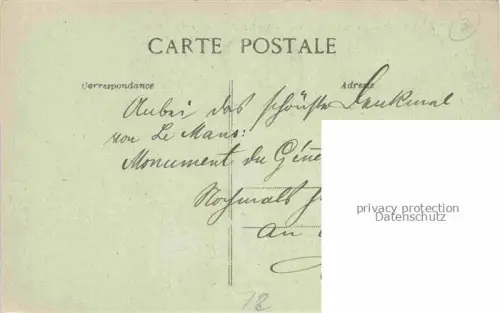 3
CARTE POSTALE
Correspondance
Adresse
Anbei das schönste Denkmal
von Le Mans:
Monument du Géné
privacy protection
Datenschutz
Nochmals
An
72